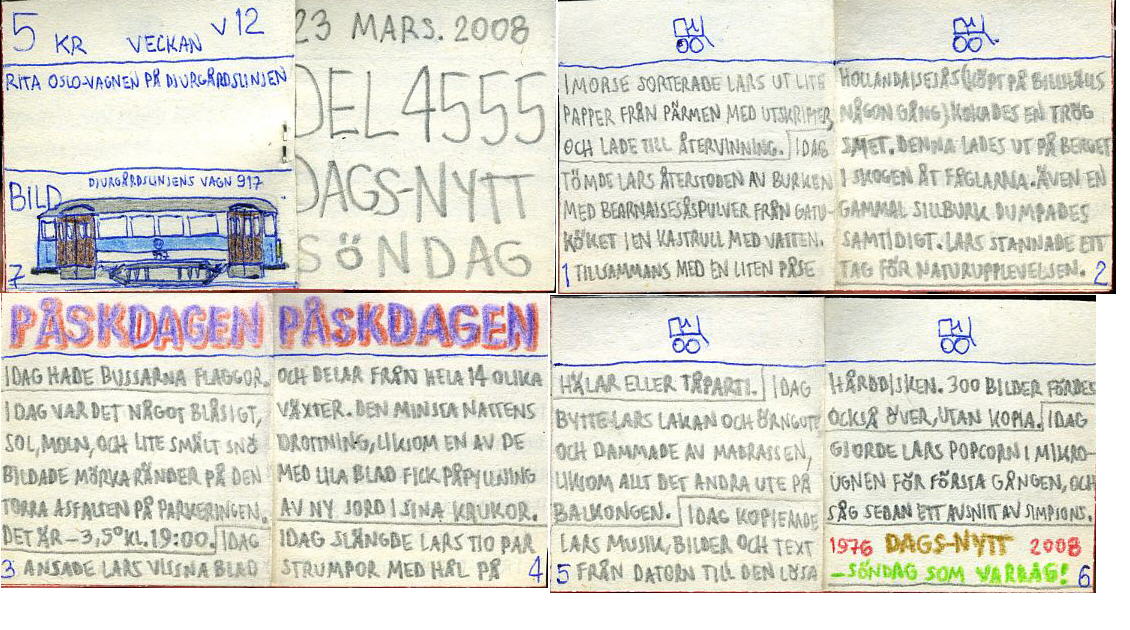 5 KR VECKAN V 12
RITA OSLO-VAGNEN PÅ DJURGÅRDSLINJEN
BILD
DJURGÅRDSLINJENS VAGN 917
7
23 MARS. 2008
DEL 4555
DAGS-NYTT
SÖNDAG
I MORSE SORTERADE LARS UT LITE
PAPPER FRÅN PÄRMEN MED UTSKRIFTER,
OCH LADE TILL ÅTERVINNING. IDAG
TÖMDE LARS ÅTERSTODEN AV BURKEN
MED BEARNAISESÅSPULVER FRÅN GATU-
KÖKET I EN KASTRULL MED VATTEN.
1 TILLSAMMANS MED EN LITEN PÅSE
HOLLANDAISESÅS (KÖPT PÅ BILLHÄLLS
NÅGON GÅNG) KOKADES EN TRÖG
SMET. DENNA LADES UT PÅ BERGET
I SKOGEN ÅT FÅGLARNA. ÄVEN EN
GAMMAL SILLBURK DUMPADES
SAMTIDIGT. LARS STANNADE ETT
TAG FÖR NATURUPPLEVELSEN. 2
PÅSKDAGEN
IDAG HADE BUSSARNA FLAGGOR.
IDAG VAR DET NÅGOT BLÅSIGT,
SOL, MOLN, OCH LITE SMÄLT SNÖ
BILDADE MÖRKA RÄNDER PÅ DEN
TORRA ASFALTEN PÅ PARKERINGEN.
DET ÄR -3,5° KL. 19:00. IDAG
3 ANSADE LARS VISSNA BLAD
PÅSKDAGEN
OCH DELAR FRÅN HELA 14 OLIKA
VÄXTER. DEN MINSTA NATTENS
DROTTNING, LIKSOM EN AV DE
MED LILA BLAD FICK PÅFYLLNING
AV NY JORD I SINA KRUKOR.
IDAG SLÄNGDE LARS TIO PAR
STRUMPOR MED HÅL PÅ 4
HÄLAR ELLER TÅPARTI. IDAG
BYTTE LARS LAKAN OCH ÖRNGOTT
OCH DAMMADE AV MADRASSEN,
LIKSOM ALLT DET ANDRA UTE PÅ
BALKONGEN. IDAG KOPIERADE
LARS MUSIK, BILDER OCH TEXT
5 FRÅN DATORN TILL DEN LÖSA
HÅRDDISKEN. 300 BILDER FÖRDES
OCKSÅ ÖVER, UTAN KOPIA. IDAG
GJORDE LARS POPCORN I MIKRO-
UGNEN FÖR FÖRSTA GÅNGEN, OCH
SÅG SEDAN ETT AVSNITT AV SIMPSONS.
1976 DAGS-NYTT 2008
-SÖNDAG SOM VARDAG! 6